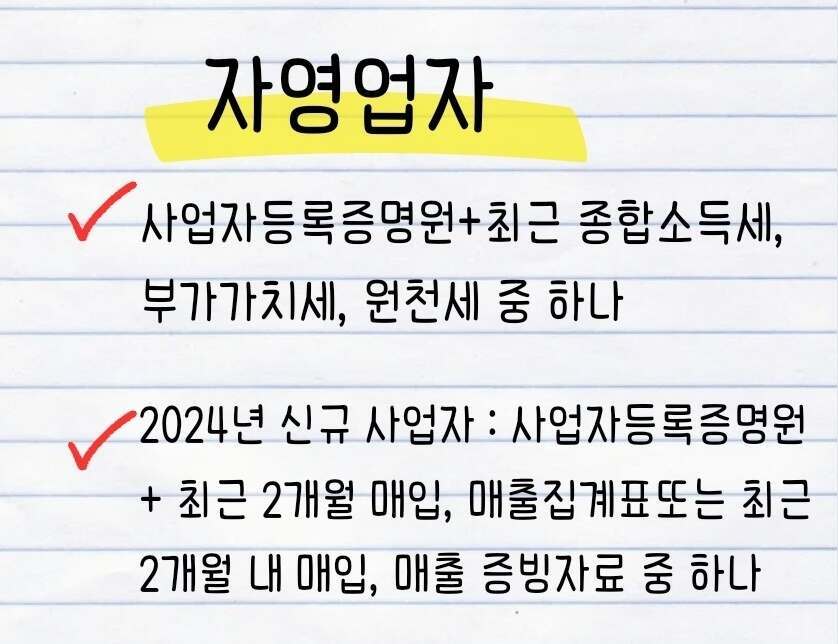 자영업자
사업자등록증명원+최근 종합소득세,
부가가치세, 원천세 중 하나
2024년 신규 사업자 : 사업자등록증명원
+ 최근 2개월 매입, 매출집계표또는 최근
2개월 내 매입, 매출 증빙자료 중 하나